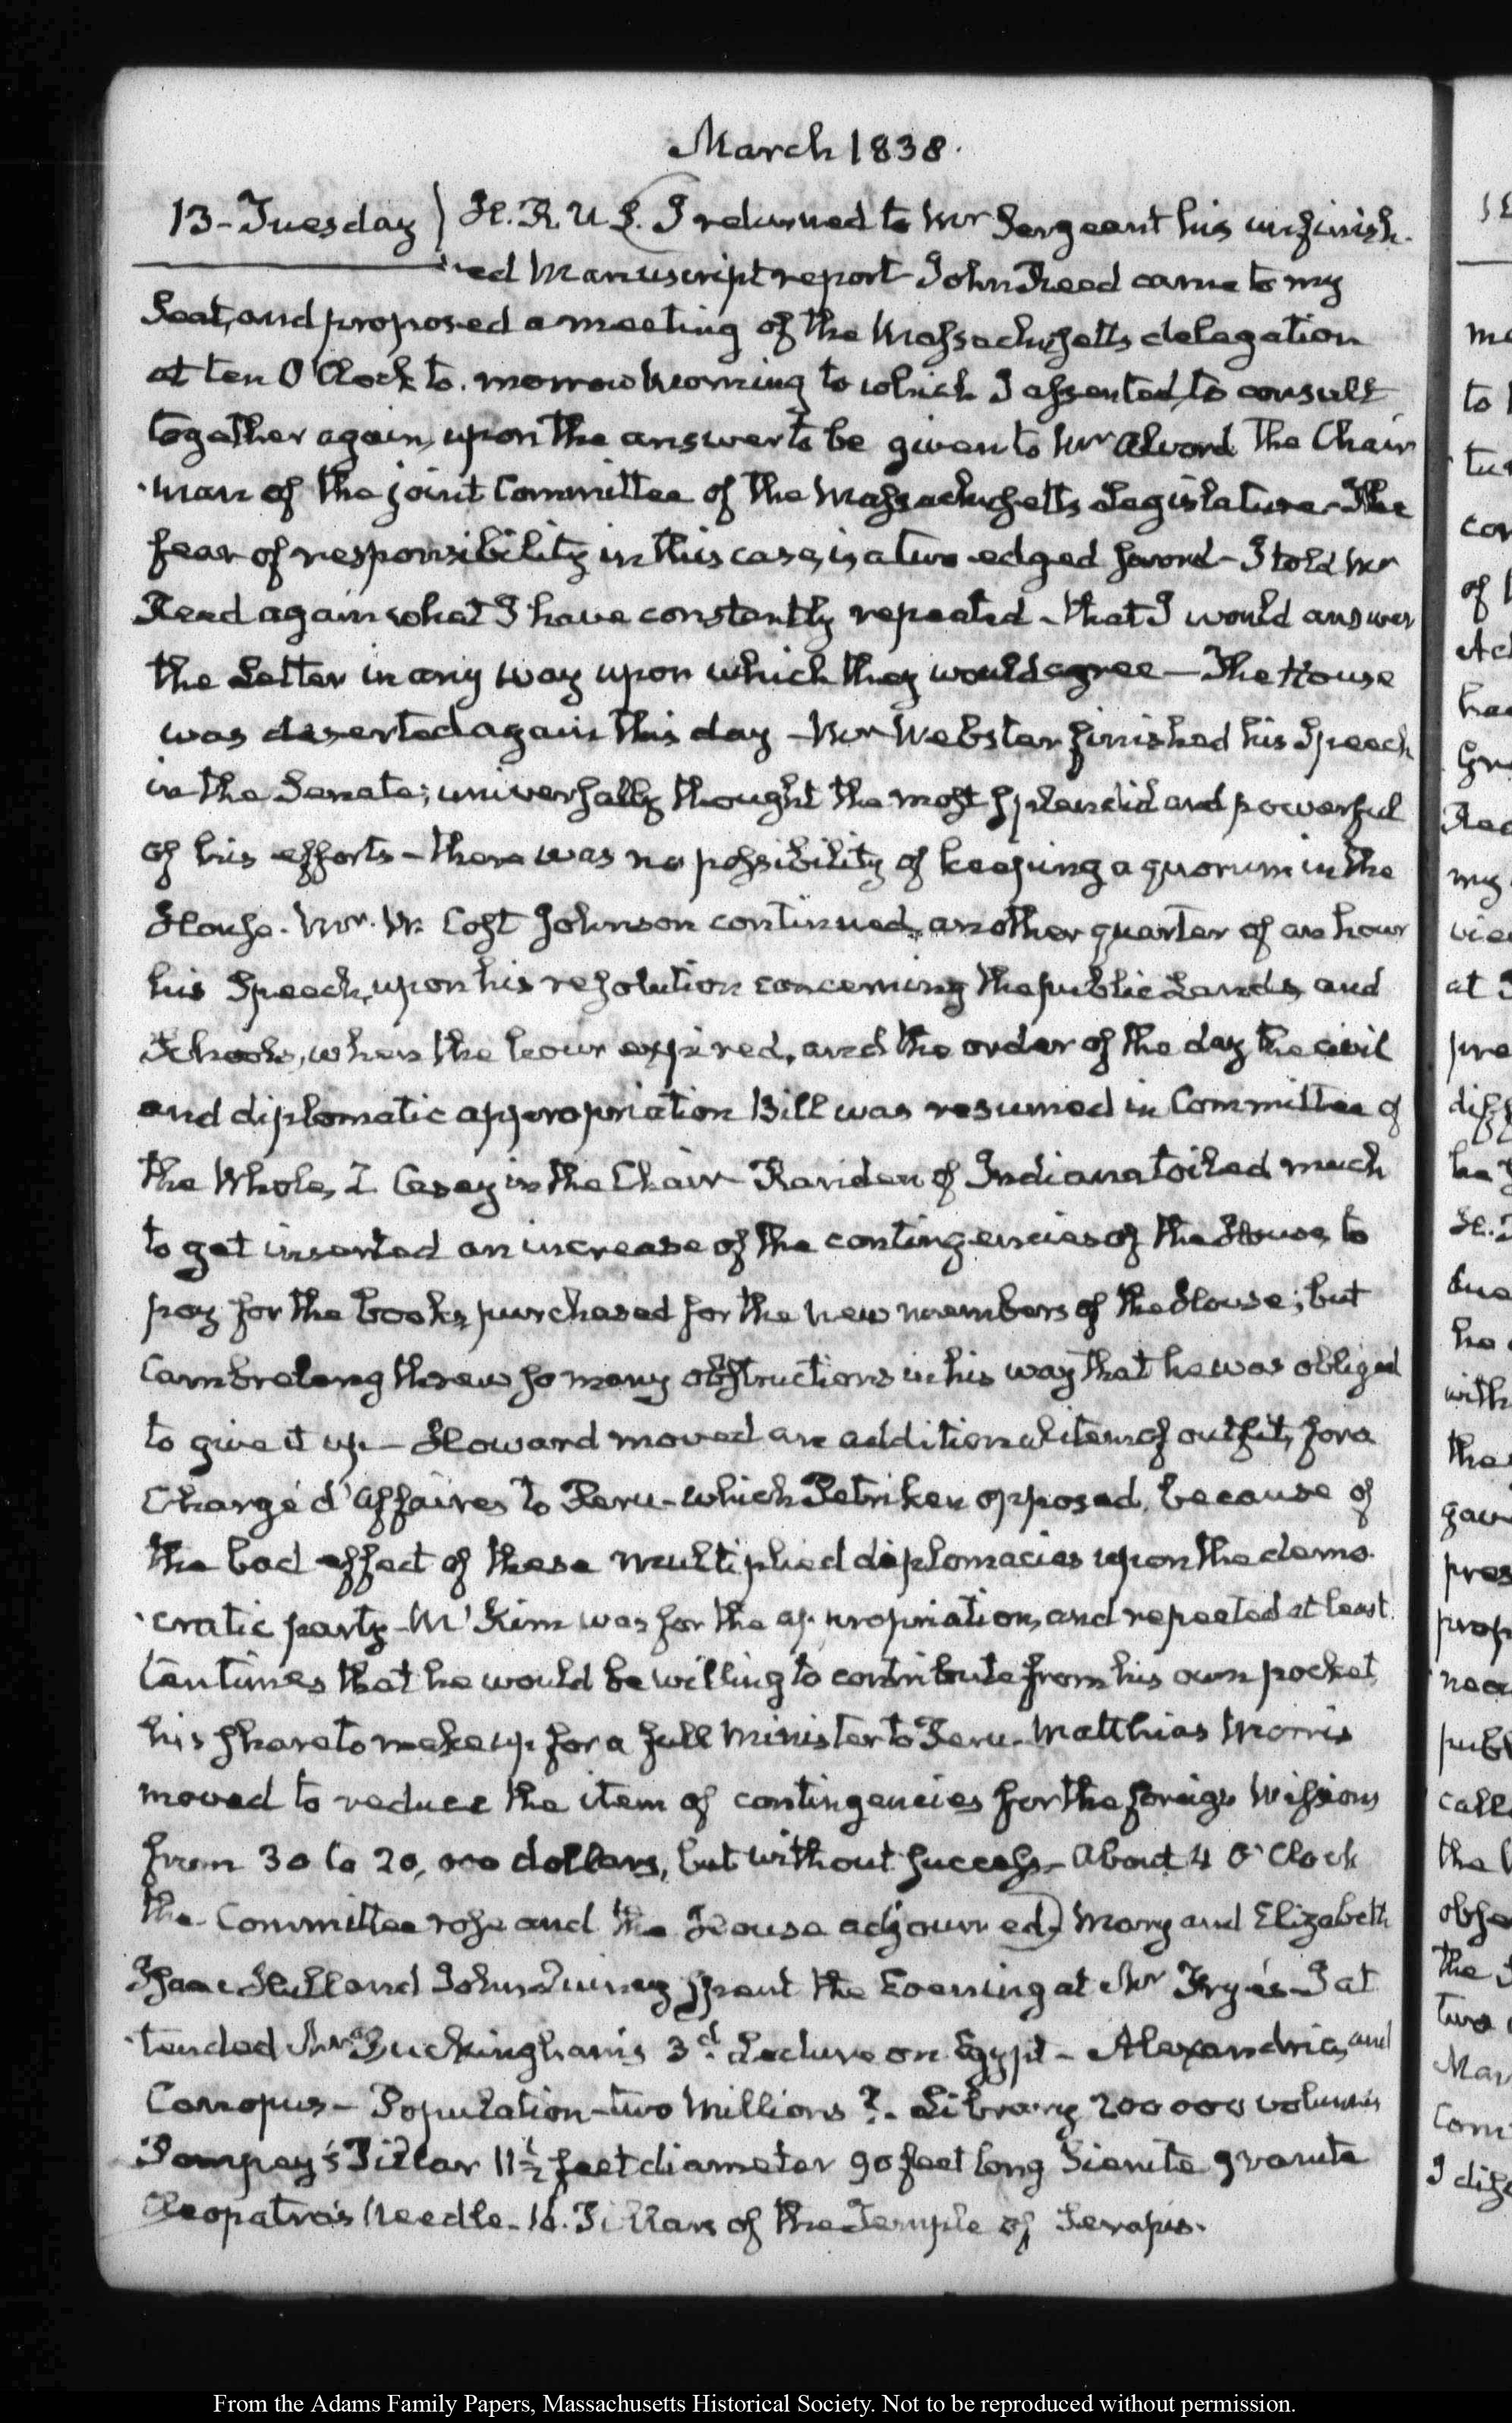 March 1838.
13-Tuesday} H. R. U S. (I returned to Mr Sergeant his unfinish-
-ed Manuscript report- John Reed came to my
Seat, and proposed a meeting of the Massachusetts delegation
at ten O'Clock to-morrow morning to which I assented, to consult
together again, upon the answer to be given to Mr Alvord The Chair
-man of the joint Committee of the Massachusetts Legislature- The
fear of responsibility in this case, is a two-edged sword- I told Mr
Reed again what I have constantly repeated- that I would answer
the Letter in any way upon which they would agree- The House
was deserted again this day- Mr Webster finished his Speech
in the Senate; universally thought the most splendid and powerful
of his efforts- there was no possibility of keeping a quorum in the
House. Mr. W. Cost Johnson continued, another quarter of an hour
his Speech, upon his resolution concerning the public Lands, and
Schools, when the hour expired, and the order of the day the civil
and diplomatic appropriation Bill was resumed in Committee of
the Whole, Z Casey in the Chair- Rariden of Indiana toiled much
to get inserted an increase of the contingencies of the House, to
pay for the books, purchased for the new members of the House; but
Cambreleng threw so many obstructions in his way that he was obliged
to give it up- Howard moved an additional item of outfit, for a
Chargé d'Affaires to Peru- which Petriken opposed, because of
the bad effect of these multiplied diplomacies upon the demo-
-cratic party- M'Kim was for the appropriation, and repeated at least
ten times that he would be willing to contribute from his own pocket,
his share to make up for a full Minister to Peru- Matthias Morris
moved to reduce the item of contingencies for the foreign Missions
from 30 to 20,000 dollars, but without success- About 4 O'Clock
the Committee rose and the House adjourned) Mary and Elizabeth
Isaac Hull and John Quincy spent the Evening at Mr Frye's- I at
-tended Mr Buckingham's 3d. Lecture on Egypt- Alexandria, and
Canopus- Population- two Millions?- Library 200000 volumes
Pompey's Pillar 11½ feet diameter 90 feet long Sienite granite
Cleopatra's Needle- Pillars of the Temple of Serapis.
From the Adams Family Papers, Massachusetts Historical Society. Not to be reproduced without permission.